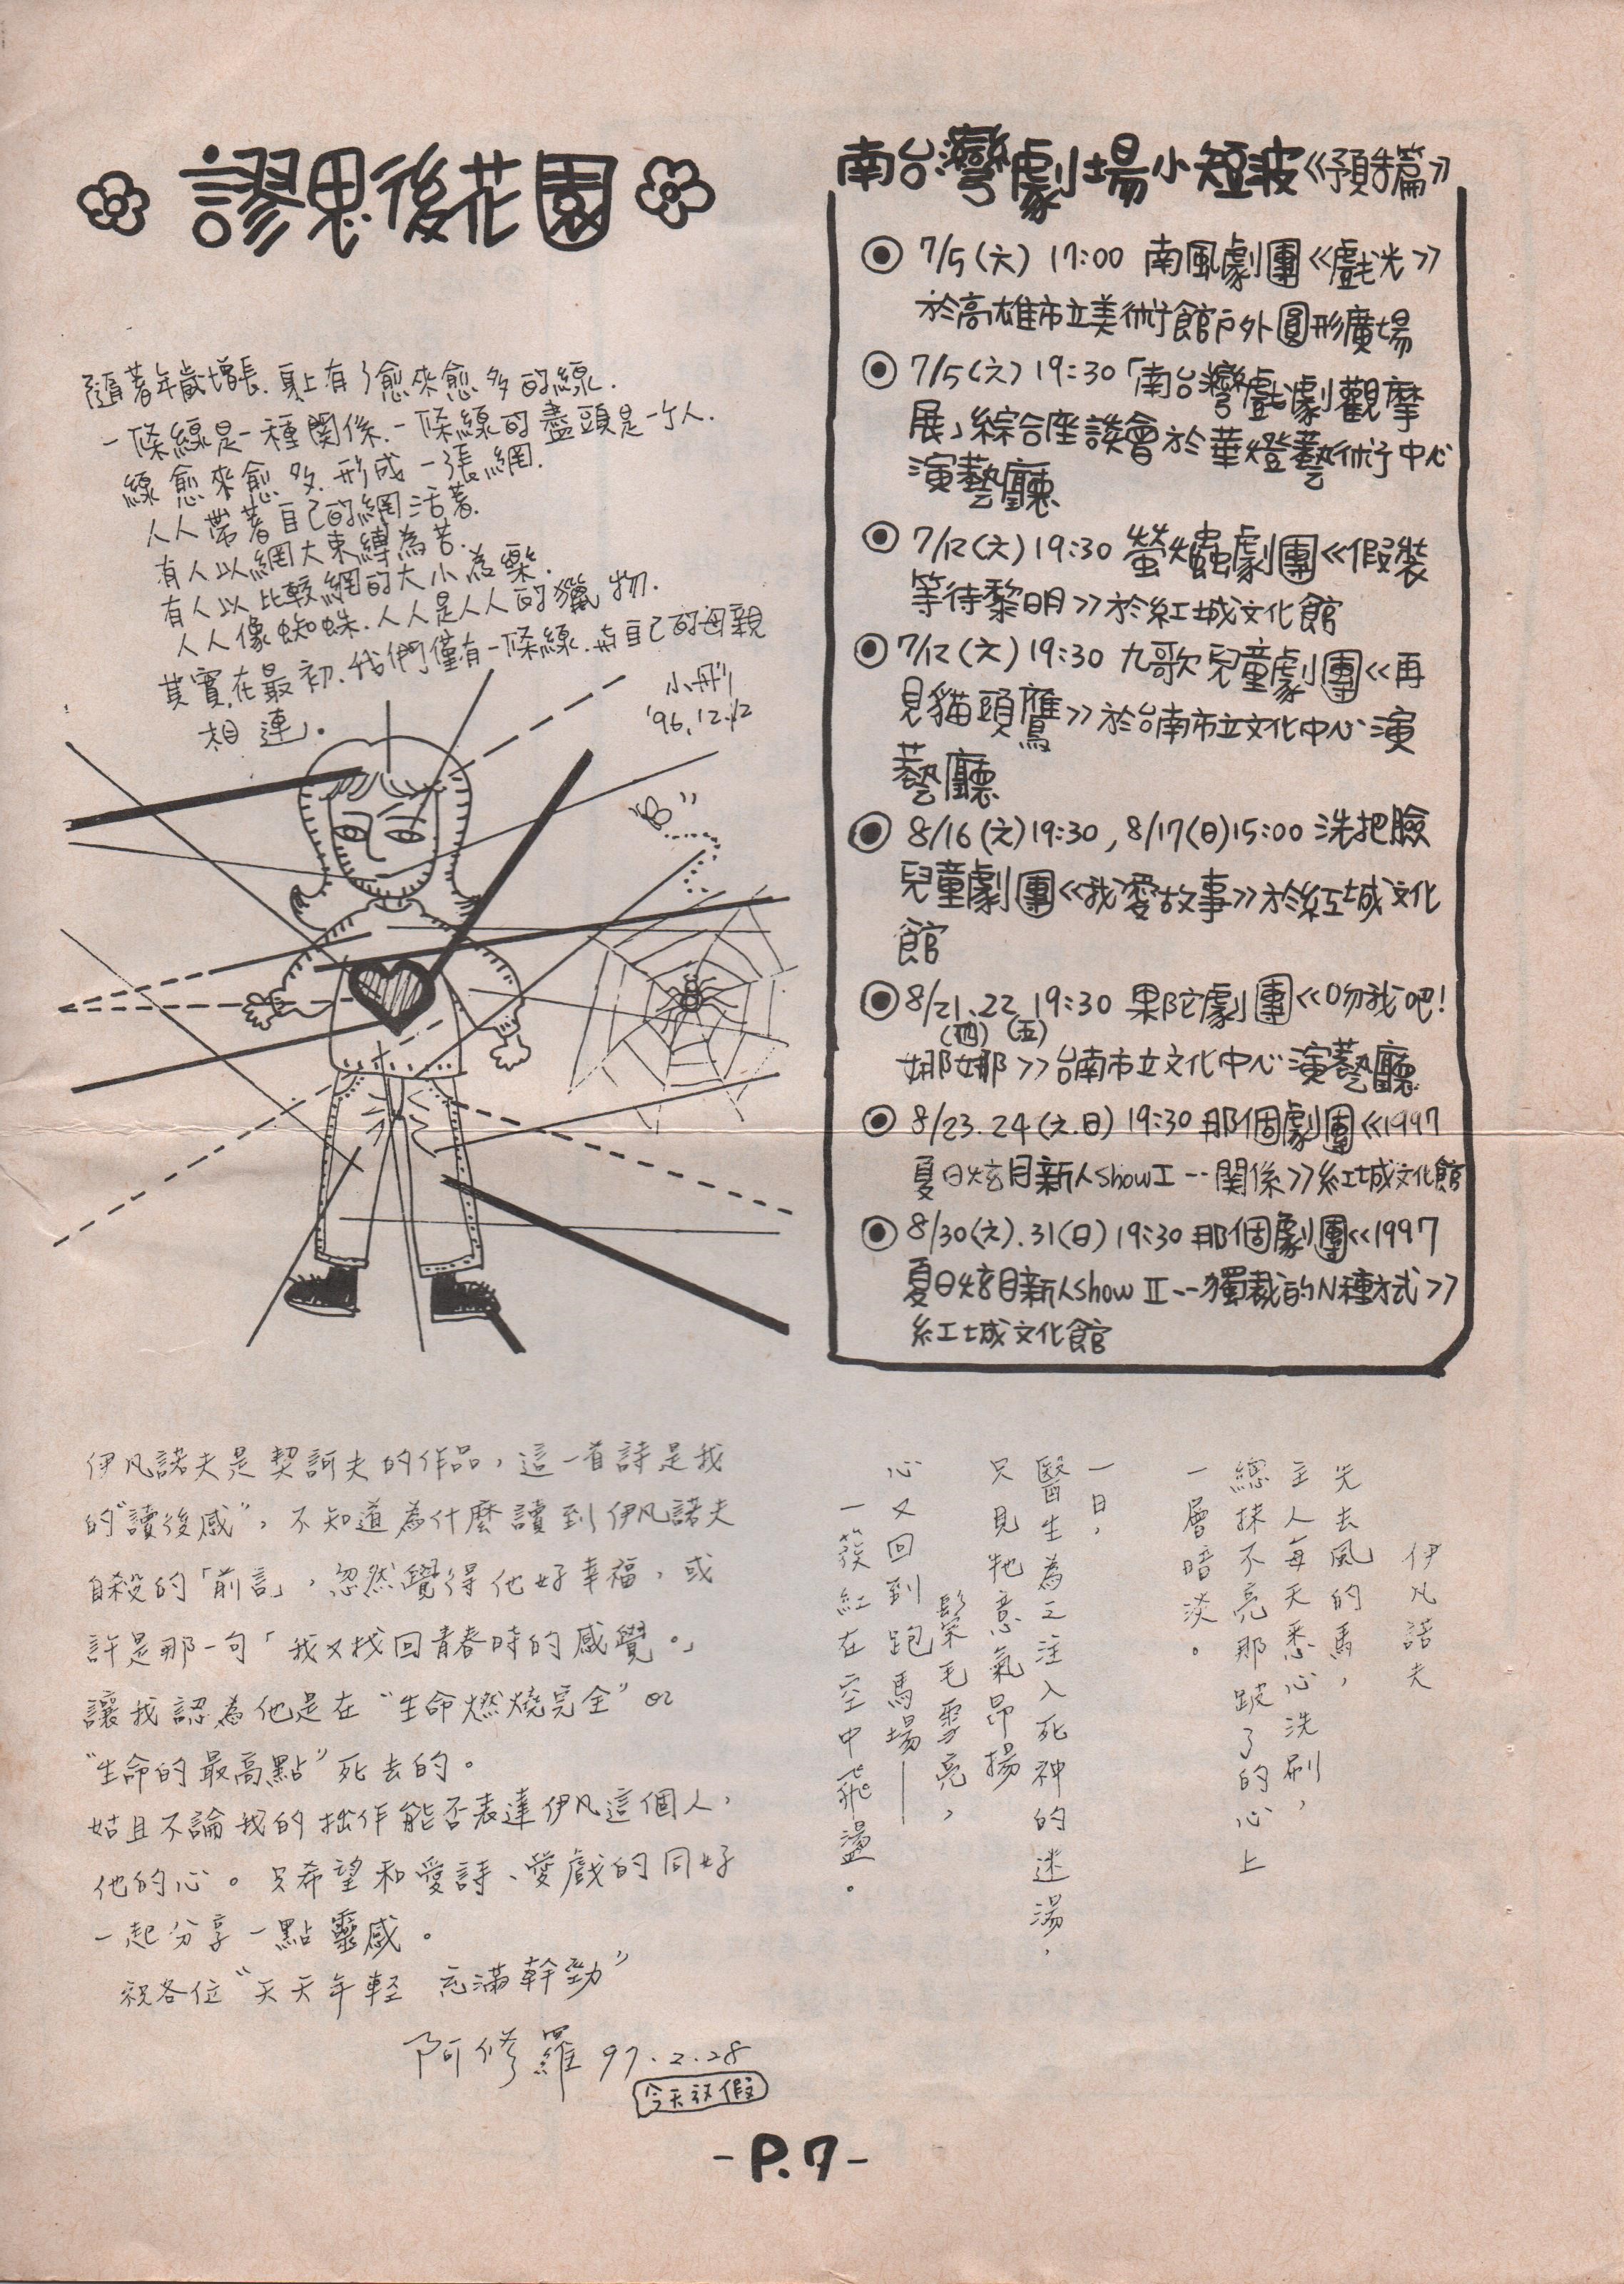 謬思後花園
隨著年歲增長.身上有了愈來愈多的線.
一條線是一種關係.一條線的盡頭是一个人.
線愈來愈多.形成一張網.
人人帶著自己的網活著.
有人以網大束縛為苦.
有人以比較網的大小為樂.
人人像蜘蛛.人人是人人的獵物.
其實.在最初.我們僅有一條線.與自己的母親
相連」。
小彤
'96.12.12
南台灣劇場小短波《預告篇》
7/5(六) 17:00 南風劇團《戲光》
於高雄市立美術館戶外圓形廣場
7/5(六) 19:30「南台灣戲劇觀摩
展」綜合座談會於華燈藝術中心
演藝廳
7/12(六) 19:30 螢火蟲劇團《假裝
等待黎明》於紅城文化館
7/12(六) 19:30 九歌兒童劇團《再
見貓頭鷹》於台南市立文化中心演
藝廳
8/16(六)19:30, 8/17(日)15:00 洗把臉
兒童劇團《我愛故事》於紅城文化
館
8/21.22 19:30 果陀劇團《吻我吧!
(四) (五)
娜娜》台南市立文化中心演藝廳
8/23.24(六.日) 19:30 那個劇團《1997
夏日炫目新人show I--關係》紅城文化館
8/30(六).31(日) 19:30 那個劇團《1997
夏日炫目新人show II--獨裁的N種方式》
紅城文化館
伊凡諾夫
失去風的馬,
主人每天悉心洗刷,
總抹不亮那跛了的心上
一層暗淡。
一日,
醫生為之注入死神的迷湯,
只見牠意氣昂揚
鬃毛雪亮,
心又回到跑馬場——
一發紅在空中飛盪。
伊凡諾夫是契訶夫的作品,這一首詩是我
的"讀後感",不知道為什麼讀到伊凡諾夫
自殺的「前言」,忽然覺得他好幸福,或
許是那一句「我又找回青春時的感覺。」
讓我認為他是在"生命燃燒完全"or
"生命的最高點"死去的。
姑且不論我的拙作能否表達伊凡這個人,
他的心。只希望和愛詩、愛戲的同好
一起分享一點靈感。
祝各位"天天年輕 充滿幹勁"
阿修羅 97.2.28
今天放假
-P.7-